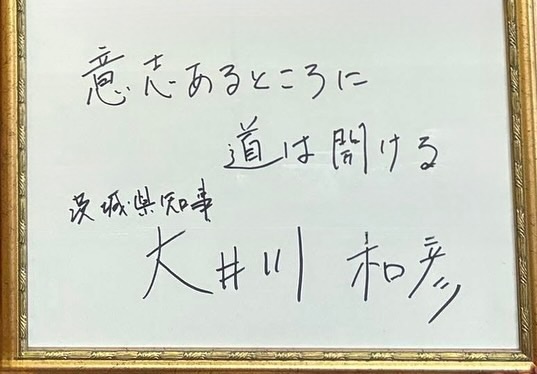 意志あるところに
道は開ける
茨城県知事
大井川 和彦